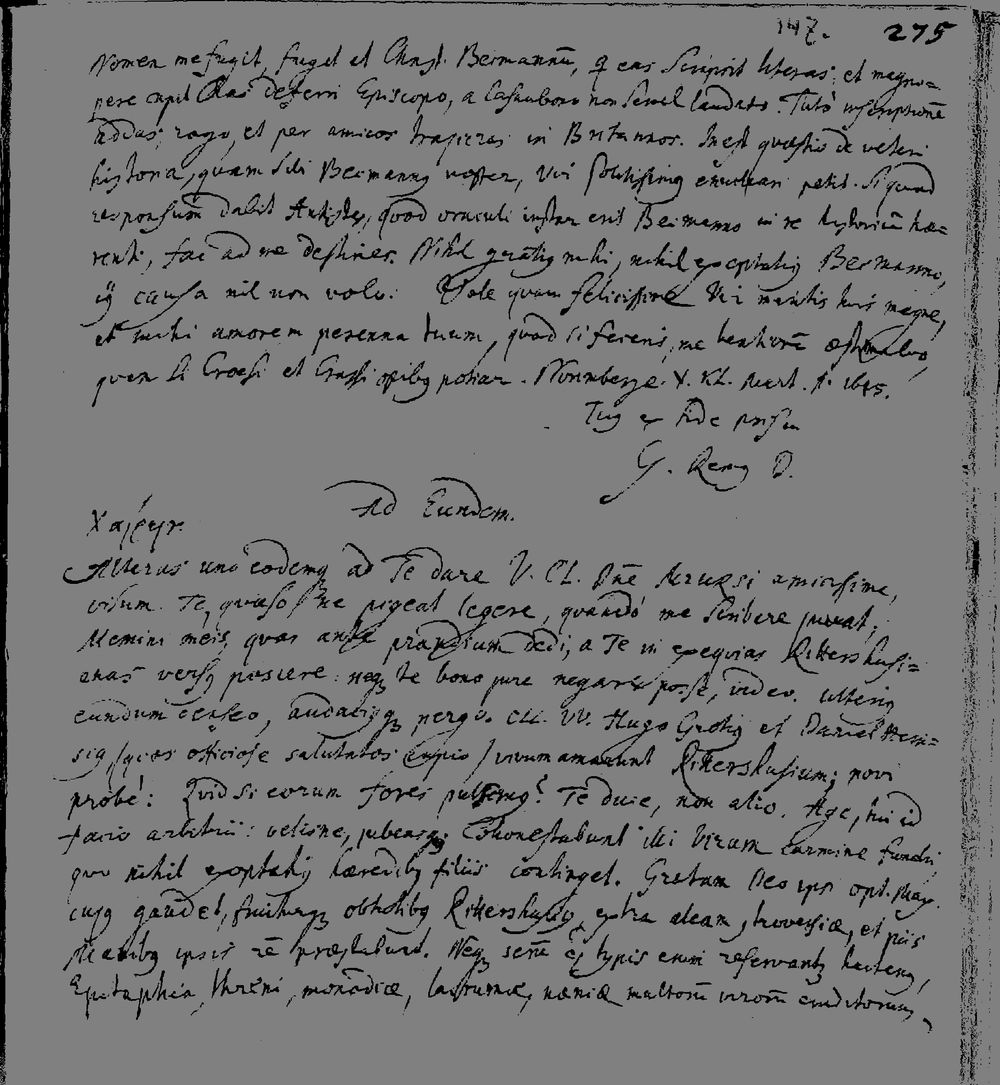 147. 275
Nomen me fugit, fuget et Christ. Beimannũ, q̃ eas scripsit literas, et magno=
pere cupit eas deferri Episcopo, a Casaubono non semel laudato. Tutò inscriptionẽ
addas, rogo, et per amicos trajicias in Britannos. Inest quæstio de veteri
historia, quam sibi Beimannus noster, Vir petit. Si quod
responsum dabit Antistes, quod oraculi instar erit Beimanno in re historicâ hæ=
renti, fac ad me destines. Nihil gratius mihi, nihil exoptatius Beimanno,
cujus causa nil non volo. Vale quam felicissime Vir magne,
et mihi amorem perenna tuum, quod si feceris, me beatiorẽ æstimabo,
quam si Croesi et Crassi opibus potiar. Norinbergæ. X. Kl. Mart. A. 1615.
Tuus ex fide prisca
G. Remus D.
Ad Eundem.
Χαίρειν.
Alteras uno eodemq; ad Te dare V. Cl. Dñe amicissime,
visum. Te, quæso, ne pigeat legere, quando me scribere juvat,
Memini meis, quas ante prandium dedi, a Te in exequias Rittershusi=
anas versus poscere: neq; te bono jure negare posse, video. Ulterius
eundum censeo, audaciusq; pergo. Cll. VV. Hugo Grotius et Daniel Hein=
sius, (quos officiose salutatos cupio) virum amarunt Rittershusium; novi
probè: Quid si eorum fores pulsemus? Te duce, non alio. Age, tui id
facio arbitrii: velisne, jubeasq; Cohonestabunt illi Virum carmine funebri
quo nihil exoptatius hæredibus filiis continget. Gratum Deo ipsi opt. Max.
cujus gaudet, fruiturq; Rittershusius, extra aleam, et piis
Manibus ipsis rẽ præstabunt. Neq; typis enim reservantur hactenus,
Epitaphia, thręni, monodiæ, lacrumæ, næniæ multorũ virorũ eruditorum,